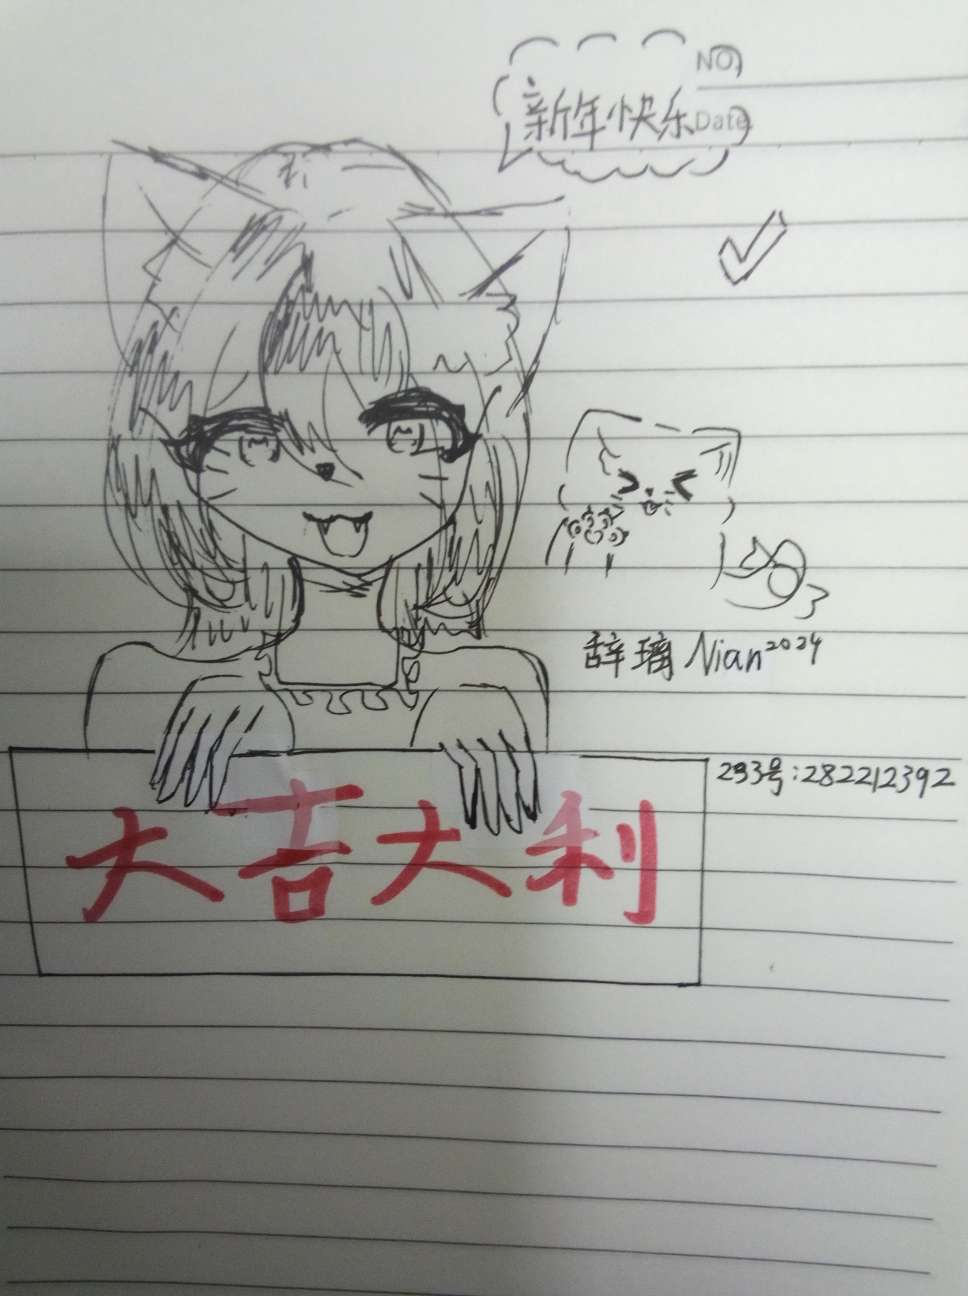 NO.
新年快乐
Date
辞璃 Nian 2024
233号:282212392
大吉大利